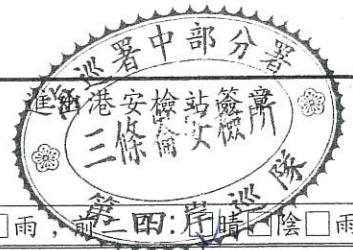 海巡署中部分署
進出港安檢站簽章
三條崙安檢所
第四岸巡隊
□雨，前一日：□晴□陰□雨